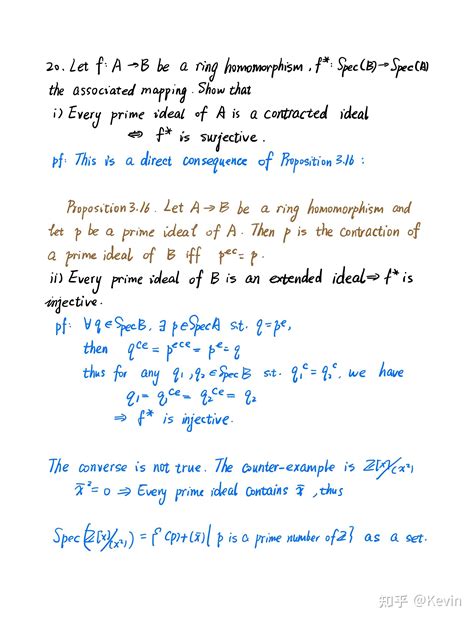 20. Let f: A → B be a ring homomorphism, f*: Spec(B) → Spec(A)
the associated mapping. Show that
i) Every prime ideal of A is a contracted ideal
⇔ f* is surjective.
pf: This is a direct consequence of Proposition 3.16:
Proposition 3.16. Let A → B be a ring homomorphism and
let p be a prime ideal of A. Then p is the contraction of
a prime ideal of B iff p^{ec} = p.
ii) Every prime ideal of B is an extended ideal ⇒ f* is
injective.
pf: ∀ q ∈ Spec B, ∃ p ∈ Spec A s.t. q = p^e,
then q^{ce} = p^{ece} = p^e = q
thus for any q₁, q₂ ∈ Spec B s.t. q₁^c = q₂^c, we have
q₁ = q₁^{ce} = q₂^{ce} = q₂
⇒ f* is injective.
The converse is not true. The counter-example is Z[x]/(x²)
x̄² = 0 ⇒ Every prime ideal contains x̄, thus
Spec(Z[x]/(x²)) = { (p)+(x̄) | p is a prime number of Z} as a set.
知乎 @Kevin